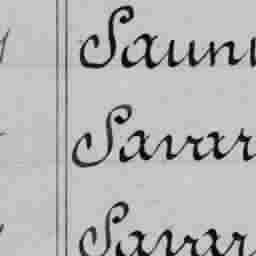 Saun
Savar
Savar